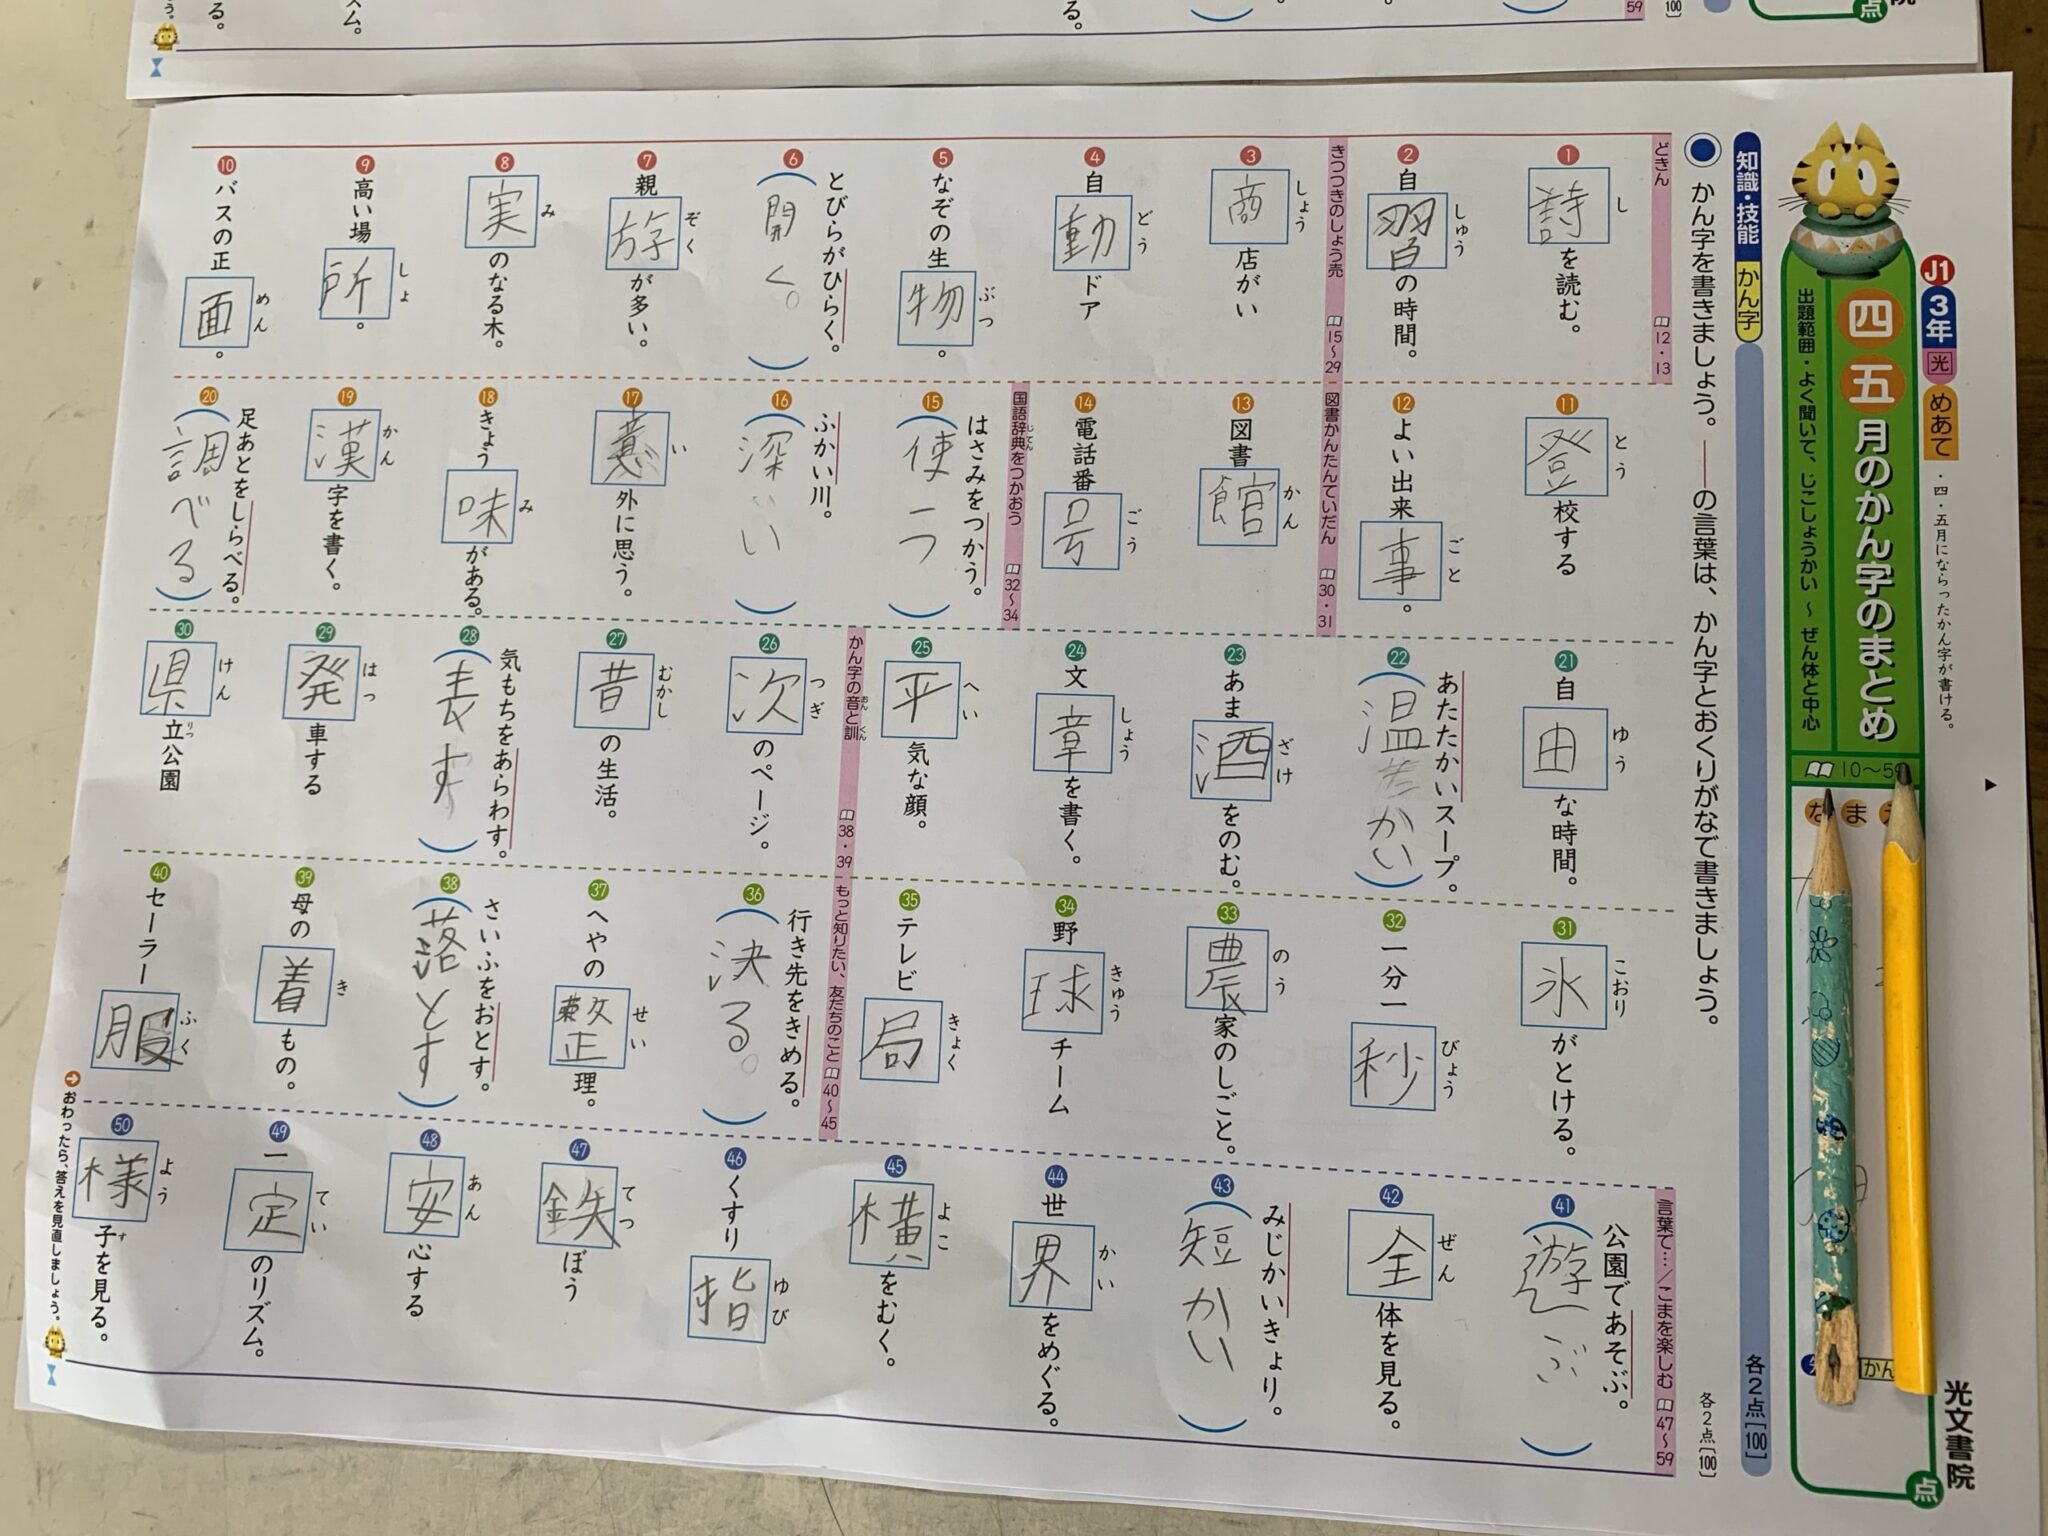 J1 3年 光 めあて ・四・五月にならったかん字が書ける。
四 五 月のかん字のまとめ
出題範囲・よく聞いて、じこしょうかい 〜 ぜん体と中心
光文書院
点
知識・技能 かん字
各2点[100]
かん字を書きましょう。――の言葉は、かん字とおくりがなで書きましょう。
各2点[100]
どきん 12・13
1 詩 し を読む。
2 自 習 しゅう の時間。
きつつきのしょう売 15〜29
3 商 しょう 店がい
4 自 動 どう ドア
5 なぞの生 物 ぶつ 。
6 とびらがひらく。 (開く。)
7 親 族 ぞく が多い。
8 実 み のなる木。
9 高い場 所 しょ 。
10 バスの正 面 めん 。
11 登 とう 校する
12 よい出来 事 ごと 。
図書かんたんていだん 30・31
13 図書 館 かん
14 電話番 号 ごう
国語辞典をつかおう じてん 32〜34
15 はさみをつかう。 (使う)
16 ふかい川。 (深い)
17 意 い 外に思う。
18 きょう 味 み がある。
19 漢 かん 字を書く。
20 足あとをしらべる。 (調べる)
21 自 由 ゆう な時間。
22 あたたかいスープ。 (温かい)
23 あま 酒 ざけ をのむ。
24 文 章 しょう を書く。
25 平 へい 気な顔。
かん字の音と訓 おん くん 38・39
26 次 つぎ のページ。
27 昔 むかし の生活。
28 気もちをあらわす。 (表す)
29 発 はっ 車する
30 県 けん 立公園 りつ
31 氷 こおり がとける。
32 一分一 秒 びょう
33 農 のう 家のしごと。
34 野 球 きゅう チーム
35 テレビ 局 きょく
もっと知りたい、友だちのこと 40〜45
36 行き先をきめる。 (決る。)
37 へやの 整 せい 理。
38 さいふをおとす。 (落とす)
39 母の 着 き もの。
40 セーラー 服 ふく
言葉で…/こまを楽しむ 47〜59
41 公園であそぶ。 (遊ぶ)
42 全 ぜん 体を見る。
43 みじかいきょり。 (短かい)
44 世 界 かい をめぐる。
45 横 よこ をむく。
46 くすり 指 ゆび
47 鉄 てつ ぼう
48 安 あん 心する
49 一 定 てい のリズム。
50 様 よう 子を見る。 す
おわったら、答えを見直しましょう。